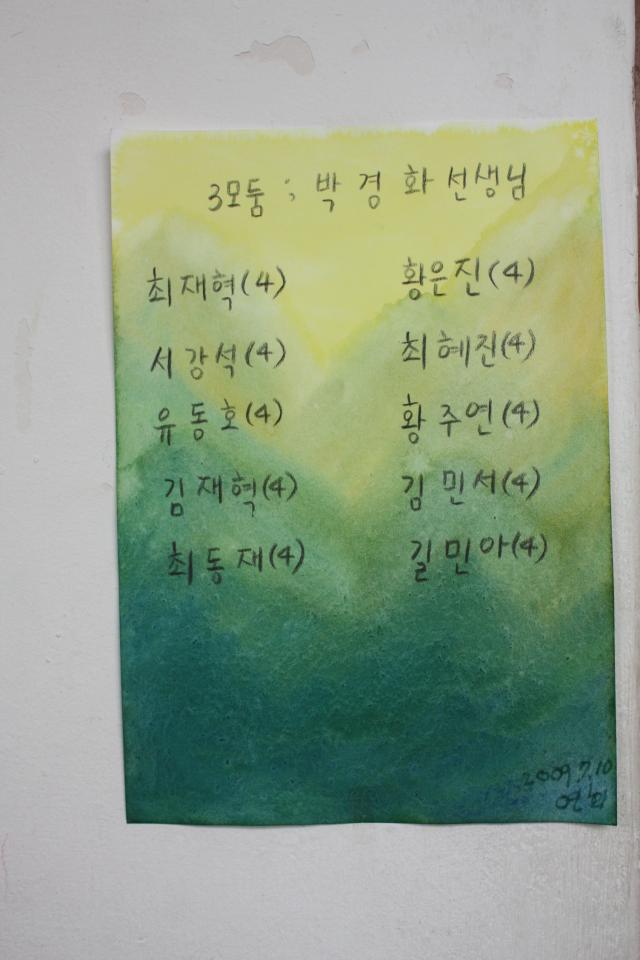 3모둠 ; 박경화선생님
최재혁(4) 황은진(4)
서강석(4) 최혜진(4)
유동호(4) 황주연(4)
김재혁(4) 김민서(4)
최동재(4) 길민아(4)
2009.7.10
연희